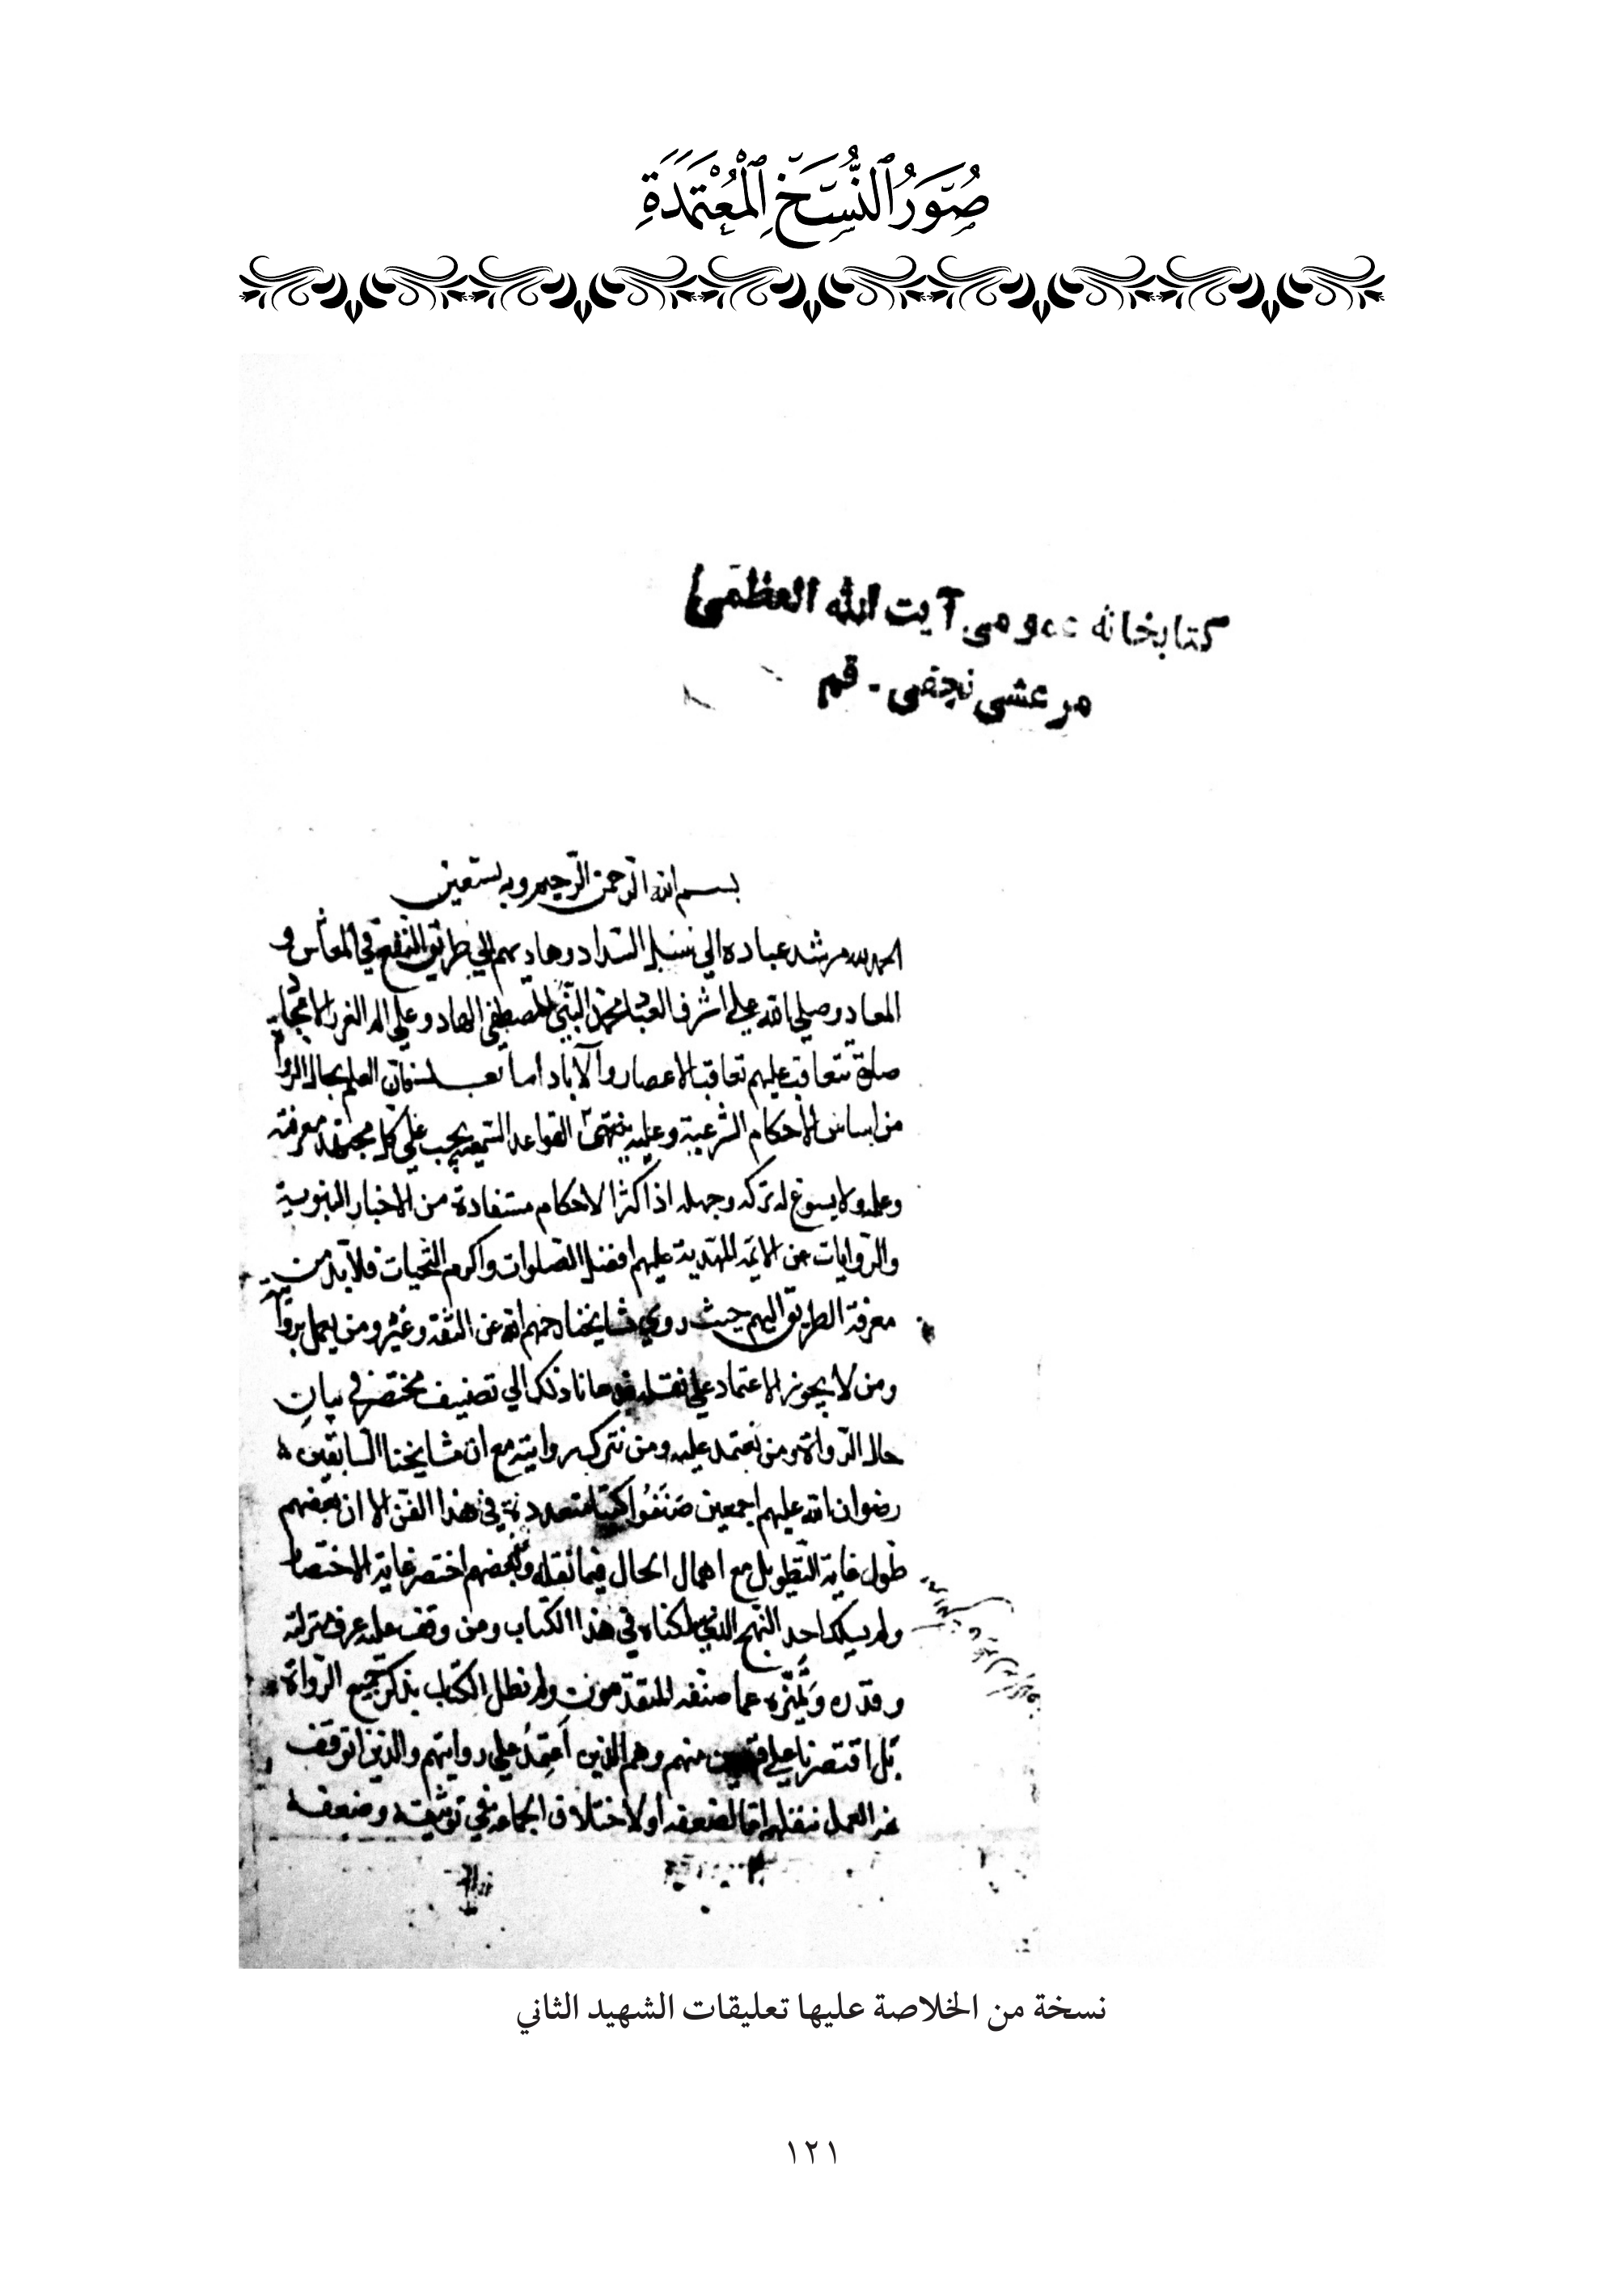 صُوَرُ النُّسَخِ الْمُعْتَمَدَةِ
كتابخانه عمومى آيت الله العظمى
مرعشى نجفى - قم
بسم الله الرحمن الرحيم وبه نستعين
الحمد لله مرشد عباده الى سبيل السداد وهاديهم الي طريق النفع في المعاش و
المعاد وصلي الله علي اشرف العباد محمد النبي المصطفي الهاد وعلي اله الغرر الامجاد
صلوة تتعاقب عليهم تعاقب الاعصار والآباد اما بعد فان العلم بحال الرواة
من اساس الاحكام الشرعية وعليه يبتني القواعد السمعيه يجب علي كل مجتهد معرفته
وعلمه ولا يسوغ له تركه وجهله اذ اكثر الاحكام مستفادة من الاخبار النبوية
والروايات عن الائمة المهتدية عليهم افضل الصلوات واكرم التحيات فلا بد من
معرفة الطريق اليهم حيث روي مشايخنا رحمهم الله عن الثقة وغيره ومن يعمل بروايته
ومن لا يجوز الاعتماد علي نقله فدعانا ذلك الي تصنيف مختصر في بيان
حال الرواة ومن نعتمد عليه ومن نترك روايته مع ان مشايخنا السابقين
رضوان الله عليهم اجمعين صنفوا كتبا متعددة في هذا الفن الا ان بعضهم
طول غاية التطويل مع اهمال الحال فيما نقله وبعضهم اختصر غاية الاختصار
ولم يسلك احد النهج الذي سلكناه في هذا الكتاب ومن وقف عليه عرف منزلته
وقدره وتميزه عما صنفه المتقدمون ولم نطل الكتاب بذكر جميع الرواة
بل اقتصرنا علي قسمين منهم وهم الذين اعتمد علي روايتهم والذين اتوقف
عن العمل بنقلهم اما لضعفه او لاختلاف الجماعة في توثيقه وضعفه
نسخة من الخلاصة عليها تعليقات الشهيد الثاني
١٢١